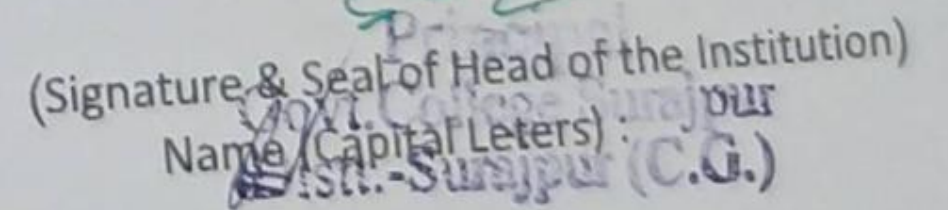 Principal
(Signature & Seal of Head of the Institution)
Govt. College Surajpur
Name (Capital Leters) :
Distt.-Surajpur (C.G.)